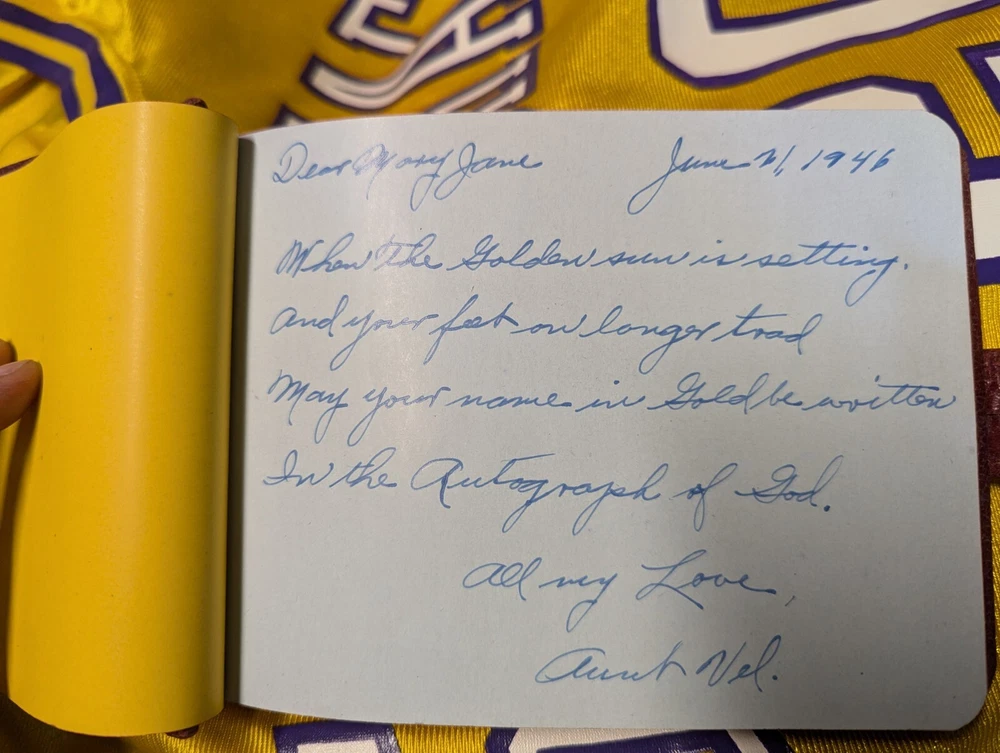 Dear Mary Jane June 21, 1946
When the Golden sun is setting.
And your feet no longer trod
May your name in Gold be written
In the Autograph of God.
All my Love,
Aunt Vel.